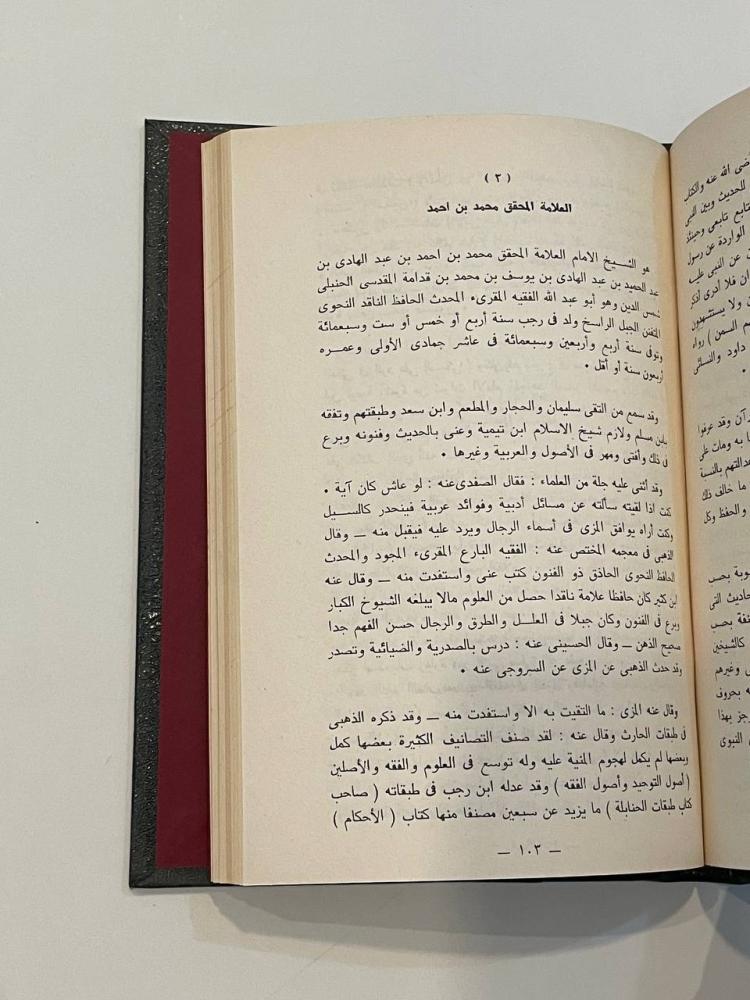 ( ٣ )
العلامة المحقق محمد بن احمد
هو الشيخ الامام العلامة المحقق محمد بن احمد بن عبد الهادى بن
عبد الحميد بن عبد الهادى بن يوسف بن محمد بن قدامة المقدسى الحنبلى
شمس الدين وهو أبو عبد الله الفقيه المقرىء المحدث الحافظ الناقد النحوى
المتفنن الجبل الراسخ ولد فى رجب سنة أربع أو خمس أو ست وسبعمائة
وتوفى سنة أربع وأربعين وسبعمائة فى عاشر جمادى الأولى وعمره
أربعون سنة أو أقل .
وقد سمع من التقى سليمان والحجار والمطعم وابن سعد وطبقتهم وتفقه
بابن مسلم ولازم شيخ الاسلام ابن تيمية وعنى بالحديث وفنونه وبرع
فى ذلك وأفتى ومهر فى الأصول والعربية وغيرها .
وقد أثنى عليه جلة من العلماء : فقال الصفدى عنه : لو عاش كان آية .
كنت اذا لقيته سألته عن مسائل أدبية وفوائد عربية فينحدر كالسيل
وكنت أراه يوافق المزى فى أسماء الرجال ويرد عليه فيقبل منه — وقال
الذهبى فى معجمه المختص عنه : الفقيه البارع المقرىء المجود والمحدث
الحافظ النحوى الحاذق ذو الفنون كتب عنى واستفدت منه — وقال عنه
ابن كثير كان حافظا علامة ناقدا حصل من العلوم مالا يبلغه الشيوخ الكبار
وبرع فى الفنون وكان جبلا فى العلل والطرق والرجال حسن الفهم جدا
صحيح الذهن — وقال الحسينى عنه : درس بالصدرية والضيائية وتصدر
وقد حدث الذهبى عن المزى عن السروجى عنه .
وقال عنه المزى : ما التقيت به الا واستفدت منه — وقد ذكره الذهبى
فى طبقات الحارث وقال عنه : لقد صنف التصانيف الكثيرة بعضها كمل
وبعضها لم يكمل لهجوم المنية عليه وله توسع فى العلوم والفقه والأصلين
( أصول التوحيد وأصول الفقه ) وقد عدله ابن رجب فى طبقاته ( صاحب
كتاب طبقات الحنابلة ) ما يزيد عن سبعين مصنفا منها كتاب ( الأحكام )
— ١٠٣ —